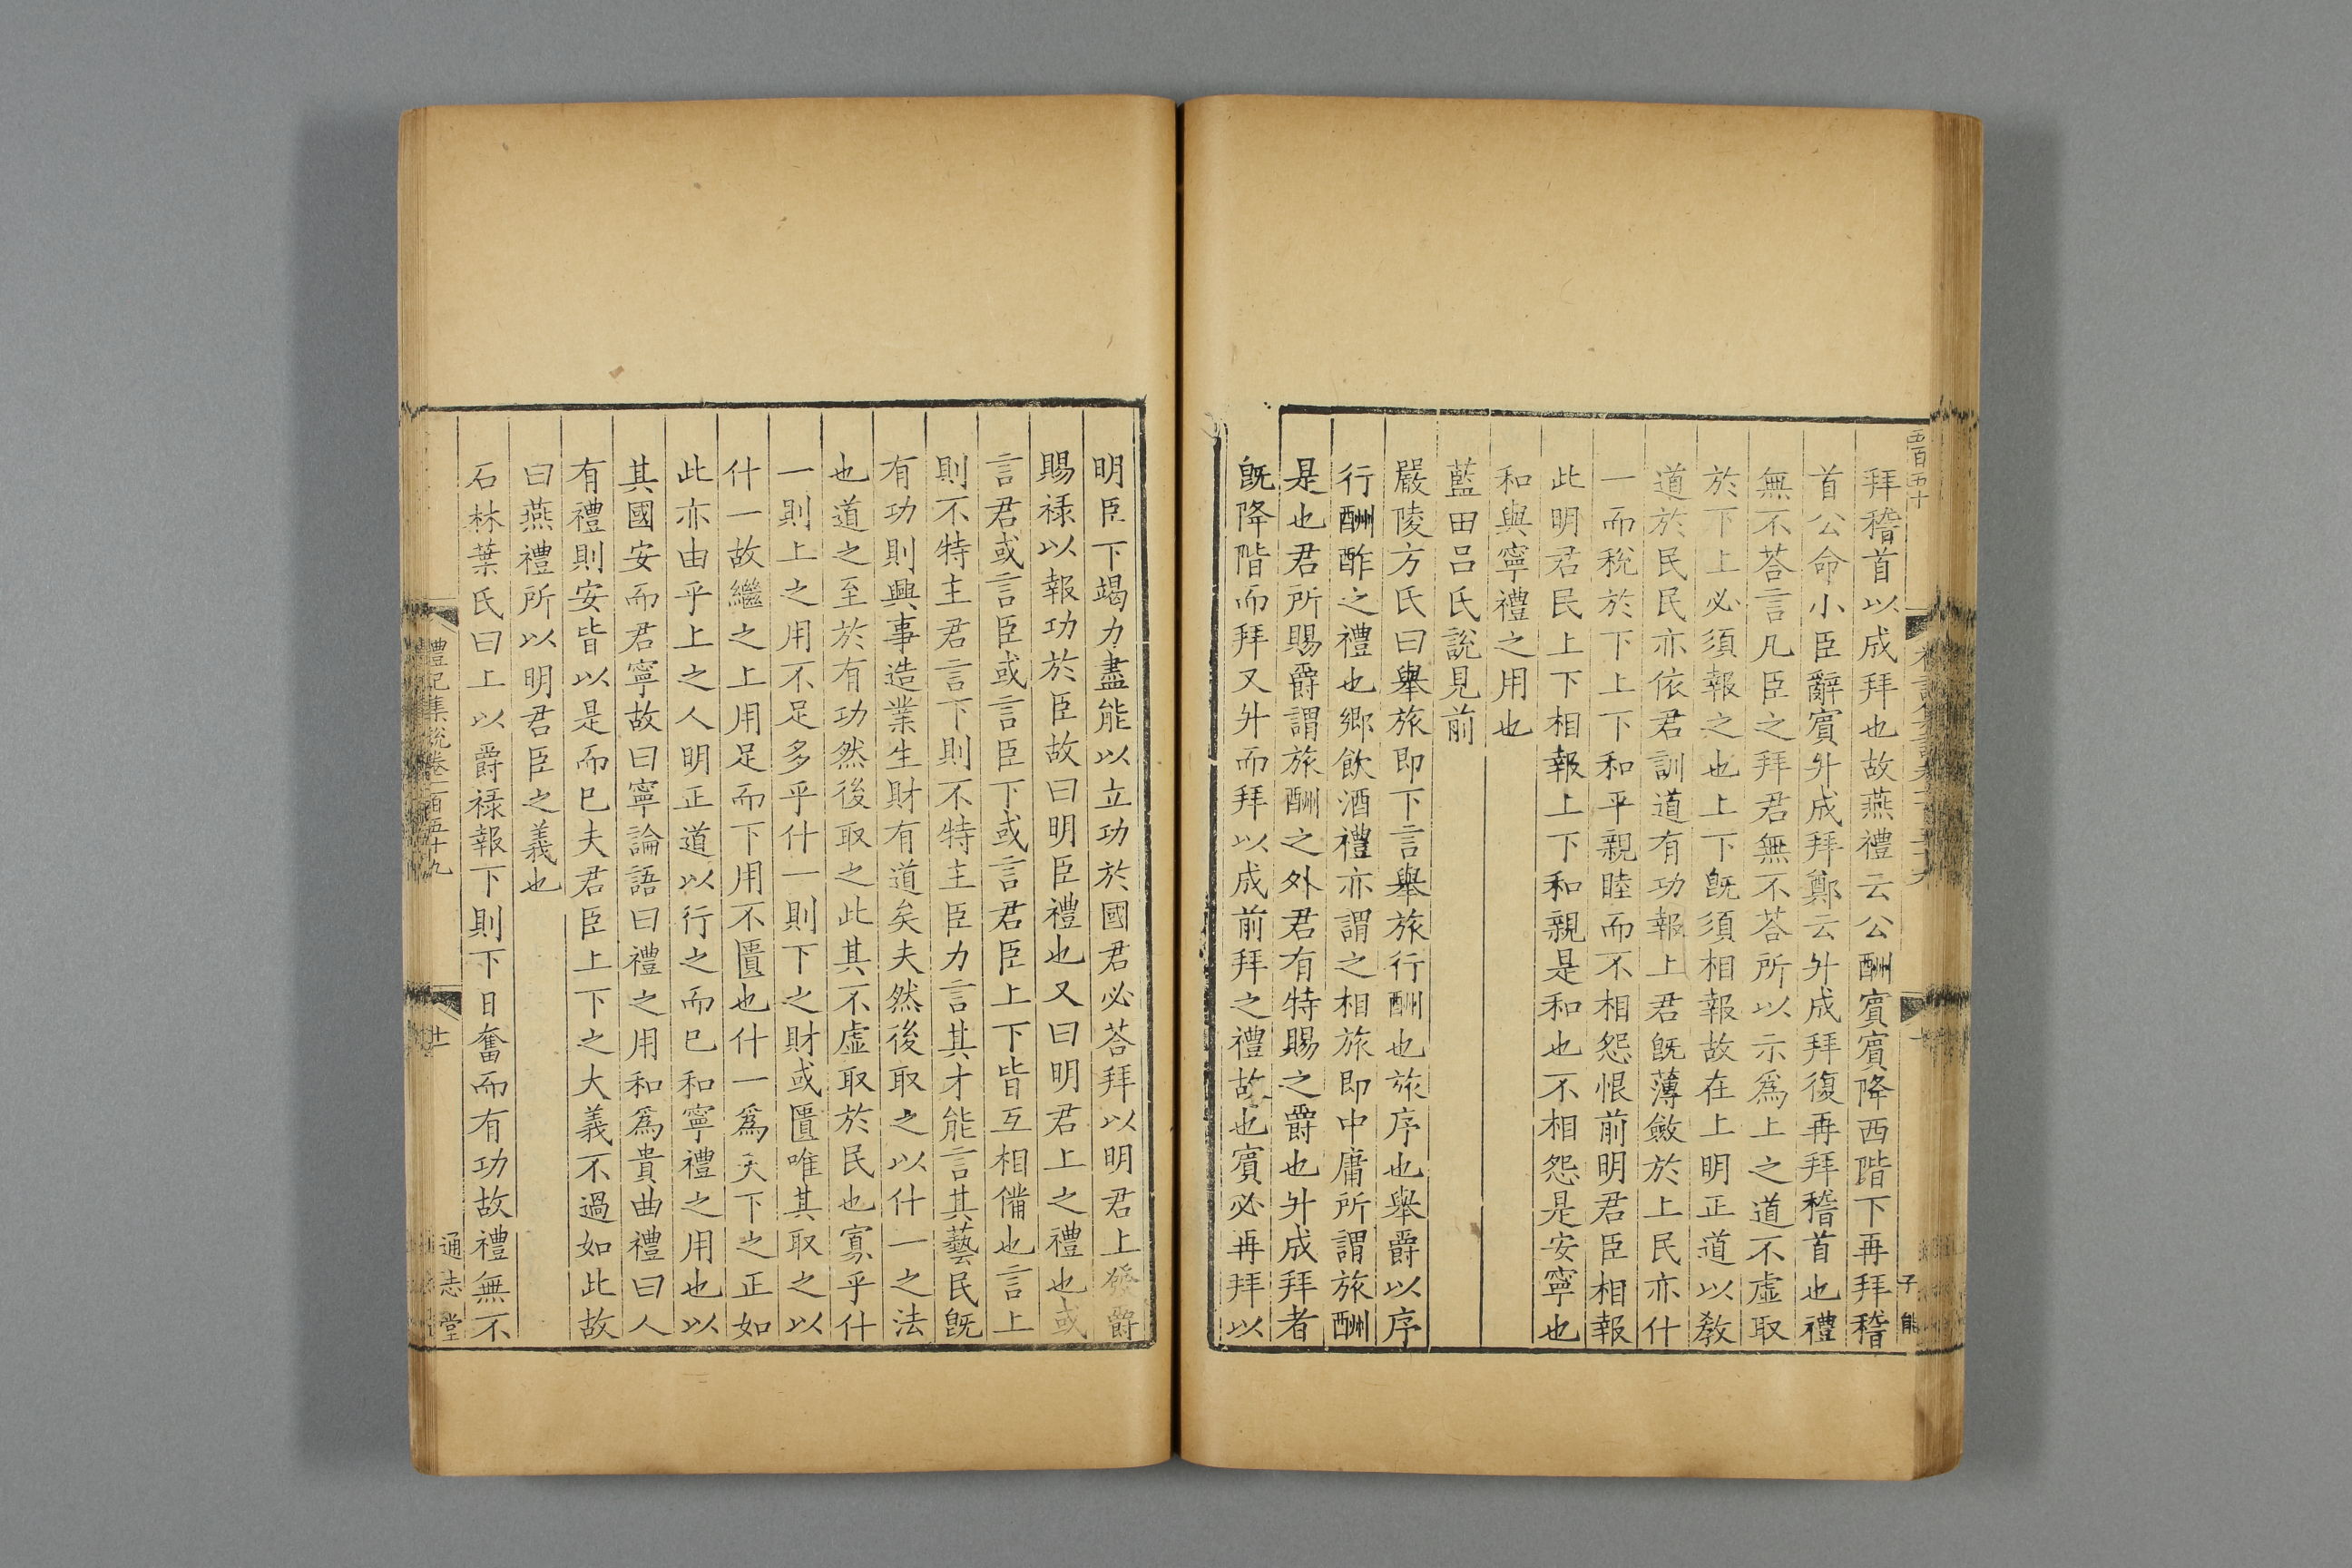 五百五十
拜稽首以成拜也故燕禮云公酬賓賓降西階下再拜稽
首公命小臣辭賓升成拜鄭云升成拜復再拜稽首也禮
無不荅言凡臣之拜君無不荅所以示爲上之道不虛取
於下上必須報之也上下旣須相報故在上明正道以教
道於民民亦依君訓道有功報上君旣薄斂於上民亦什
一而稅於下上下和平親睦而不相怨恨前明君臣相報
此明君民上下相報上下和親是和也不相怨是安寧也
和與寧禮之用也
藍田呂氏說見前
嚴陵方氏曰舉旅即下言舉旅行酬也旅序也舉爵以序
行酬酢之禮也鄉飲酒禮亦謂之相旅即中庸所謂旅酬
是也君所賜爵謂旅酬之外君有特賜之爵也升成拜者
旣降階而拜又升而拜以成前拜之禮故也賓必再拜以
子能
明臣下竭力盡能以立功於國君必荅拜以明君上發爵
賜祿以報功於臣故曰明臣禮也又曰明君上之禮也或
言君或言臣或言臣下或言君臣上下皆互相備也言上
則不特主君言下則不特主臣力言其才能言其藝民旣
有功則興事造業生財有道矣夫然後取之以什一之法
也道之至於有功然後取之此其不虛取於民也寡乎什
一則上之用不足多乎什一則下之財或匱唯其取之以
什一故繼之上用足而下用不匱也什一爲天下之正如
此亦由乎上之人明正道以行之而已和寧禮之用也以
其國安而君寧故曰寧論語曰禮之用和爲貴曲禮曰人
有禮則安皆以是而已夫君臣上下之大義不過如此故
曰燕禮所以明君臣之義也
石林葉氏曰上以爵祿報下則下日奮而有功故禮無不
禮記集說卷一百五十九
廿
通志堂